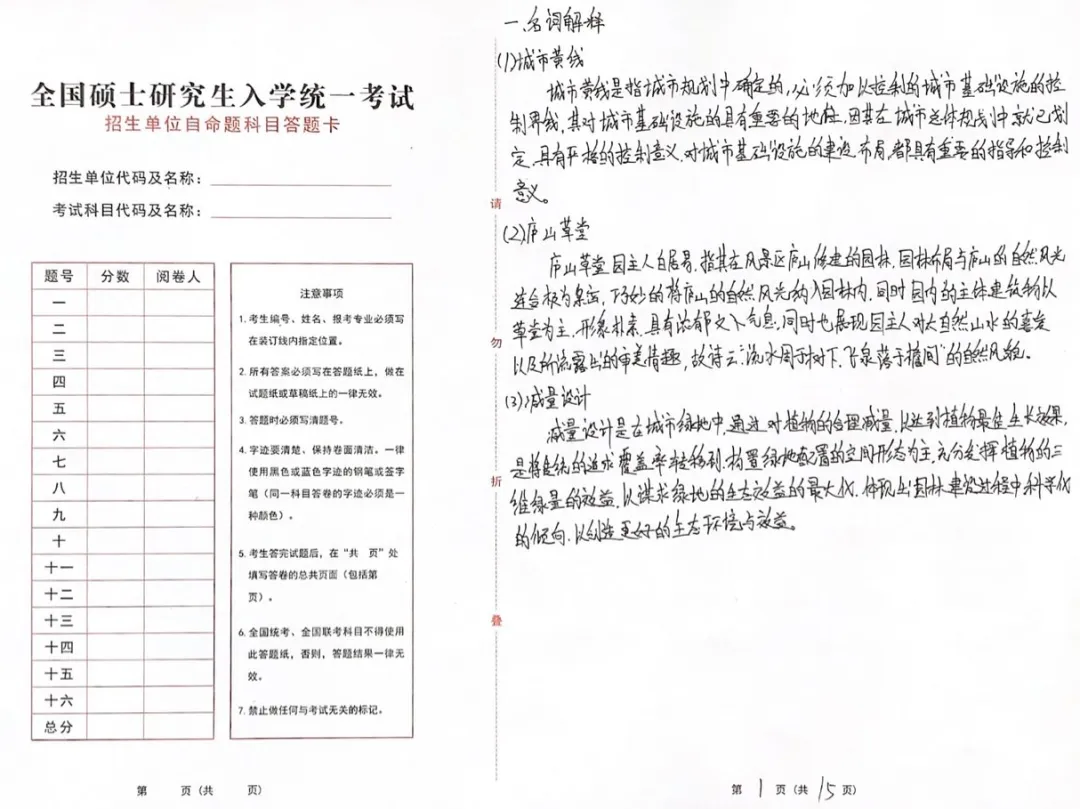 全国硕士研究生入学统一考试
招生单位自命题科目答题卡
招生单位代码及名称：
考试科目代码及名称：
题号 分数 阅卷人
一
二
三
四
五
六
七
八
九
十
十一
十二
十三
十四
十五
十六
总分
注意事项
1. 考生编号、姓名、报考专业必须写
在装订线内指定位置。
2. 所有答案必须写在答题纸上，做在
试题纸或草稿纸上的一律无效。
3. 答题时必须写清题号。
4. 字迹要清楚、保持卷面清洁。一律
使用黑色或蓝色字迹的钢笔或签字
笔（同一科目答卷的字迹必须是一
种颜色）。
5. 考生答完试题后，在“共 页”处
填写答卷的总共页面（包括第
页）。
6. 全国统考、全国联考科目不得使用
此答题纸，否则，答题结果一律无
效。
7. 禁止做任何与考试无关的标记。
第 页（共 页）
请
勿
折
叠
一、名词解释
(1)城市黄线
城市黄线是指城市规划中确定的，必须加以控制的城市基础设施的控
制界线，其对城市基础设施的具有重要的地位，因其在城市总体规划中就已划
定，具有严格的控制意义，对城市基础设施的建设、布局，都具有重要的指导和控制
意义。
(2)庐山草堂
庐山草堂园主人白居易，指其在风景区庐山修建的园林，园林布局与庐山的自然风光
结合极为紧密，巧妙的将庐山的自然风光纳入园林内，同时园内的主体建筑物以
草堂为主，形象朴素，具有浓郁文人气息，同时也展现园主人对大自然山水的喜爱
以及所流露出的审美情趣，故诗云：“流水周于对下，飞泉落于檐间”的自然风貌。
(3)减量设计
减量设计是在城市绿地中，通过对植物的合理减量，以达到植物最佳生长效果，
是将传统的追求覆盖率转移到，构置绿地配置的空间形态为主，充分发挥植物的三
维绿量的效益，以谋求绿地的生态效益的最大化，体现出园林建筑过程中科学化
的倾向，以创造更好的生态环境与效益。
第 1 页（共 15 页）